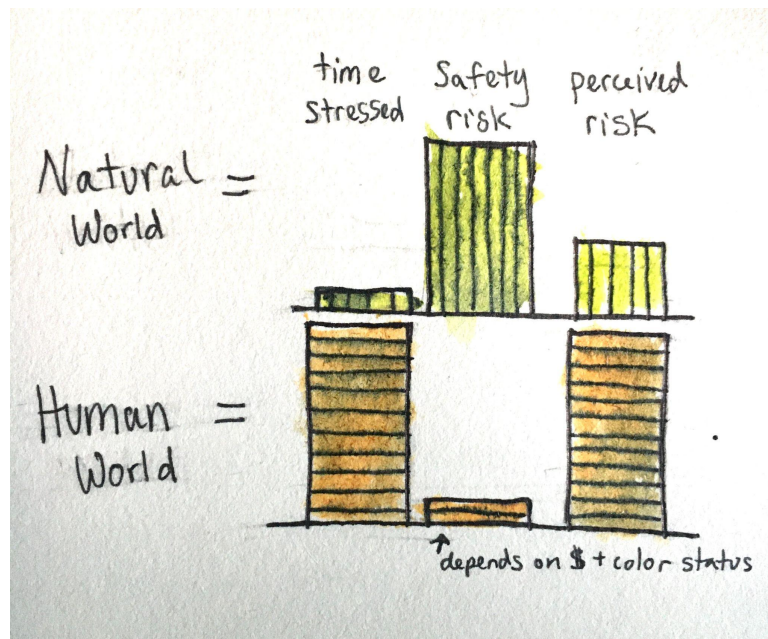 time
stressed
Safety
risk
perceived
risk
Natural
World
=
Human
World
=
depends on $ + color status